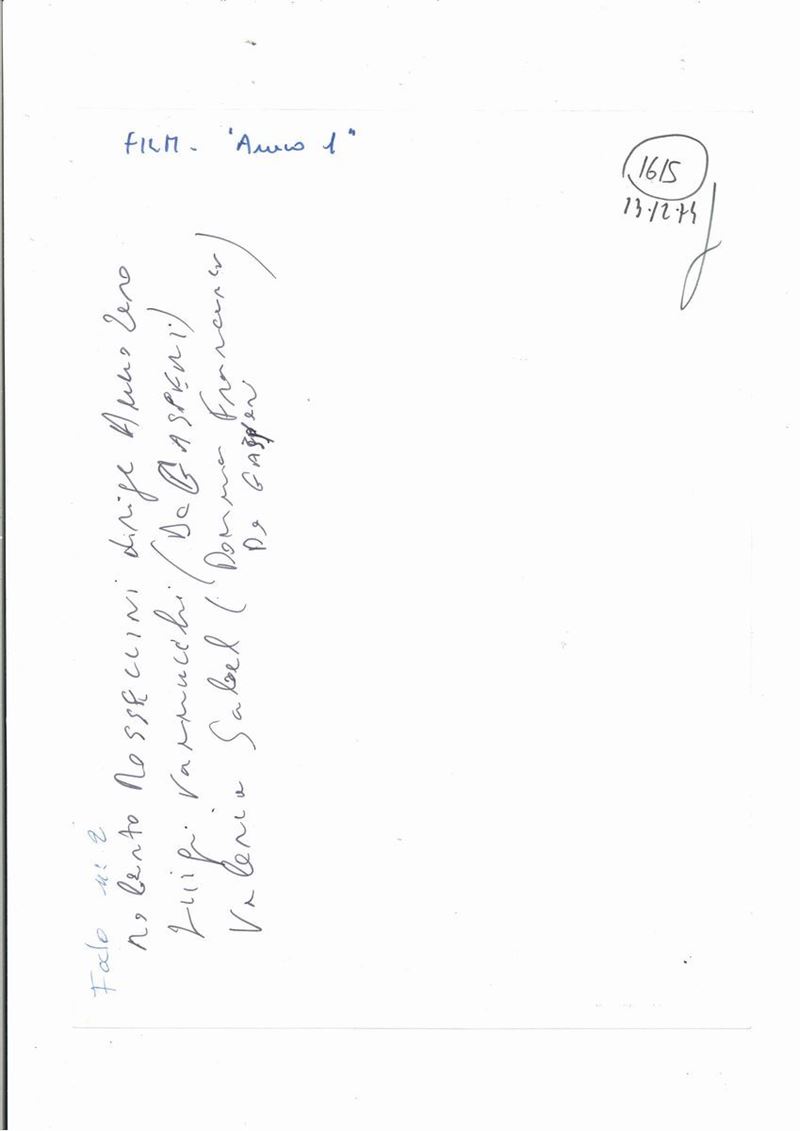 FILM - "Anno 1"
1615
13.12.74
Foto n: 2
Roberto ROSSELLINI dirige Anno Zero
Luigi Vannucchi (De GASPERI)
Valeria Sabel (Donna Francesca
De GASPERI)